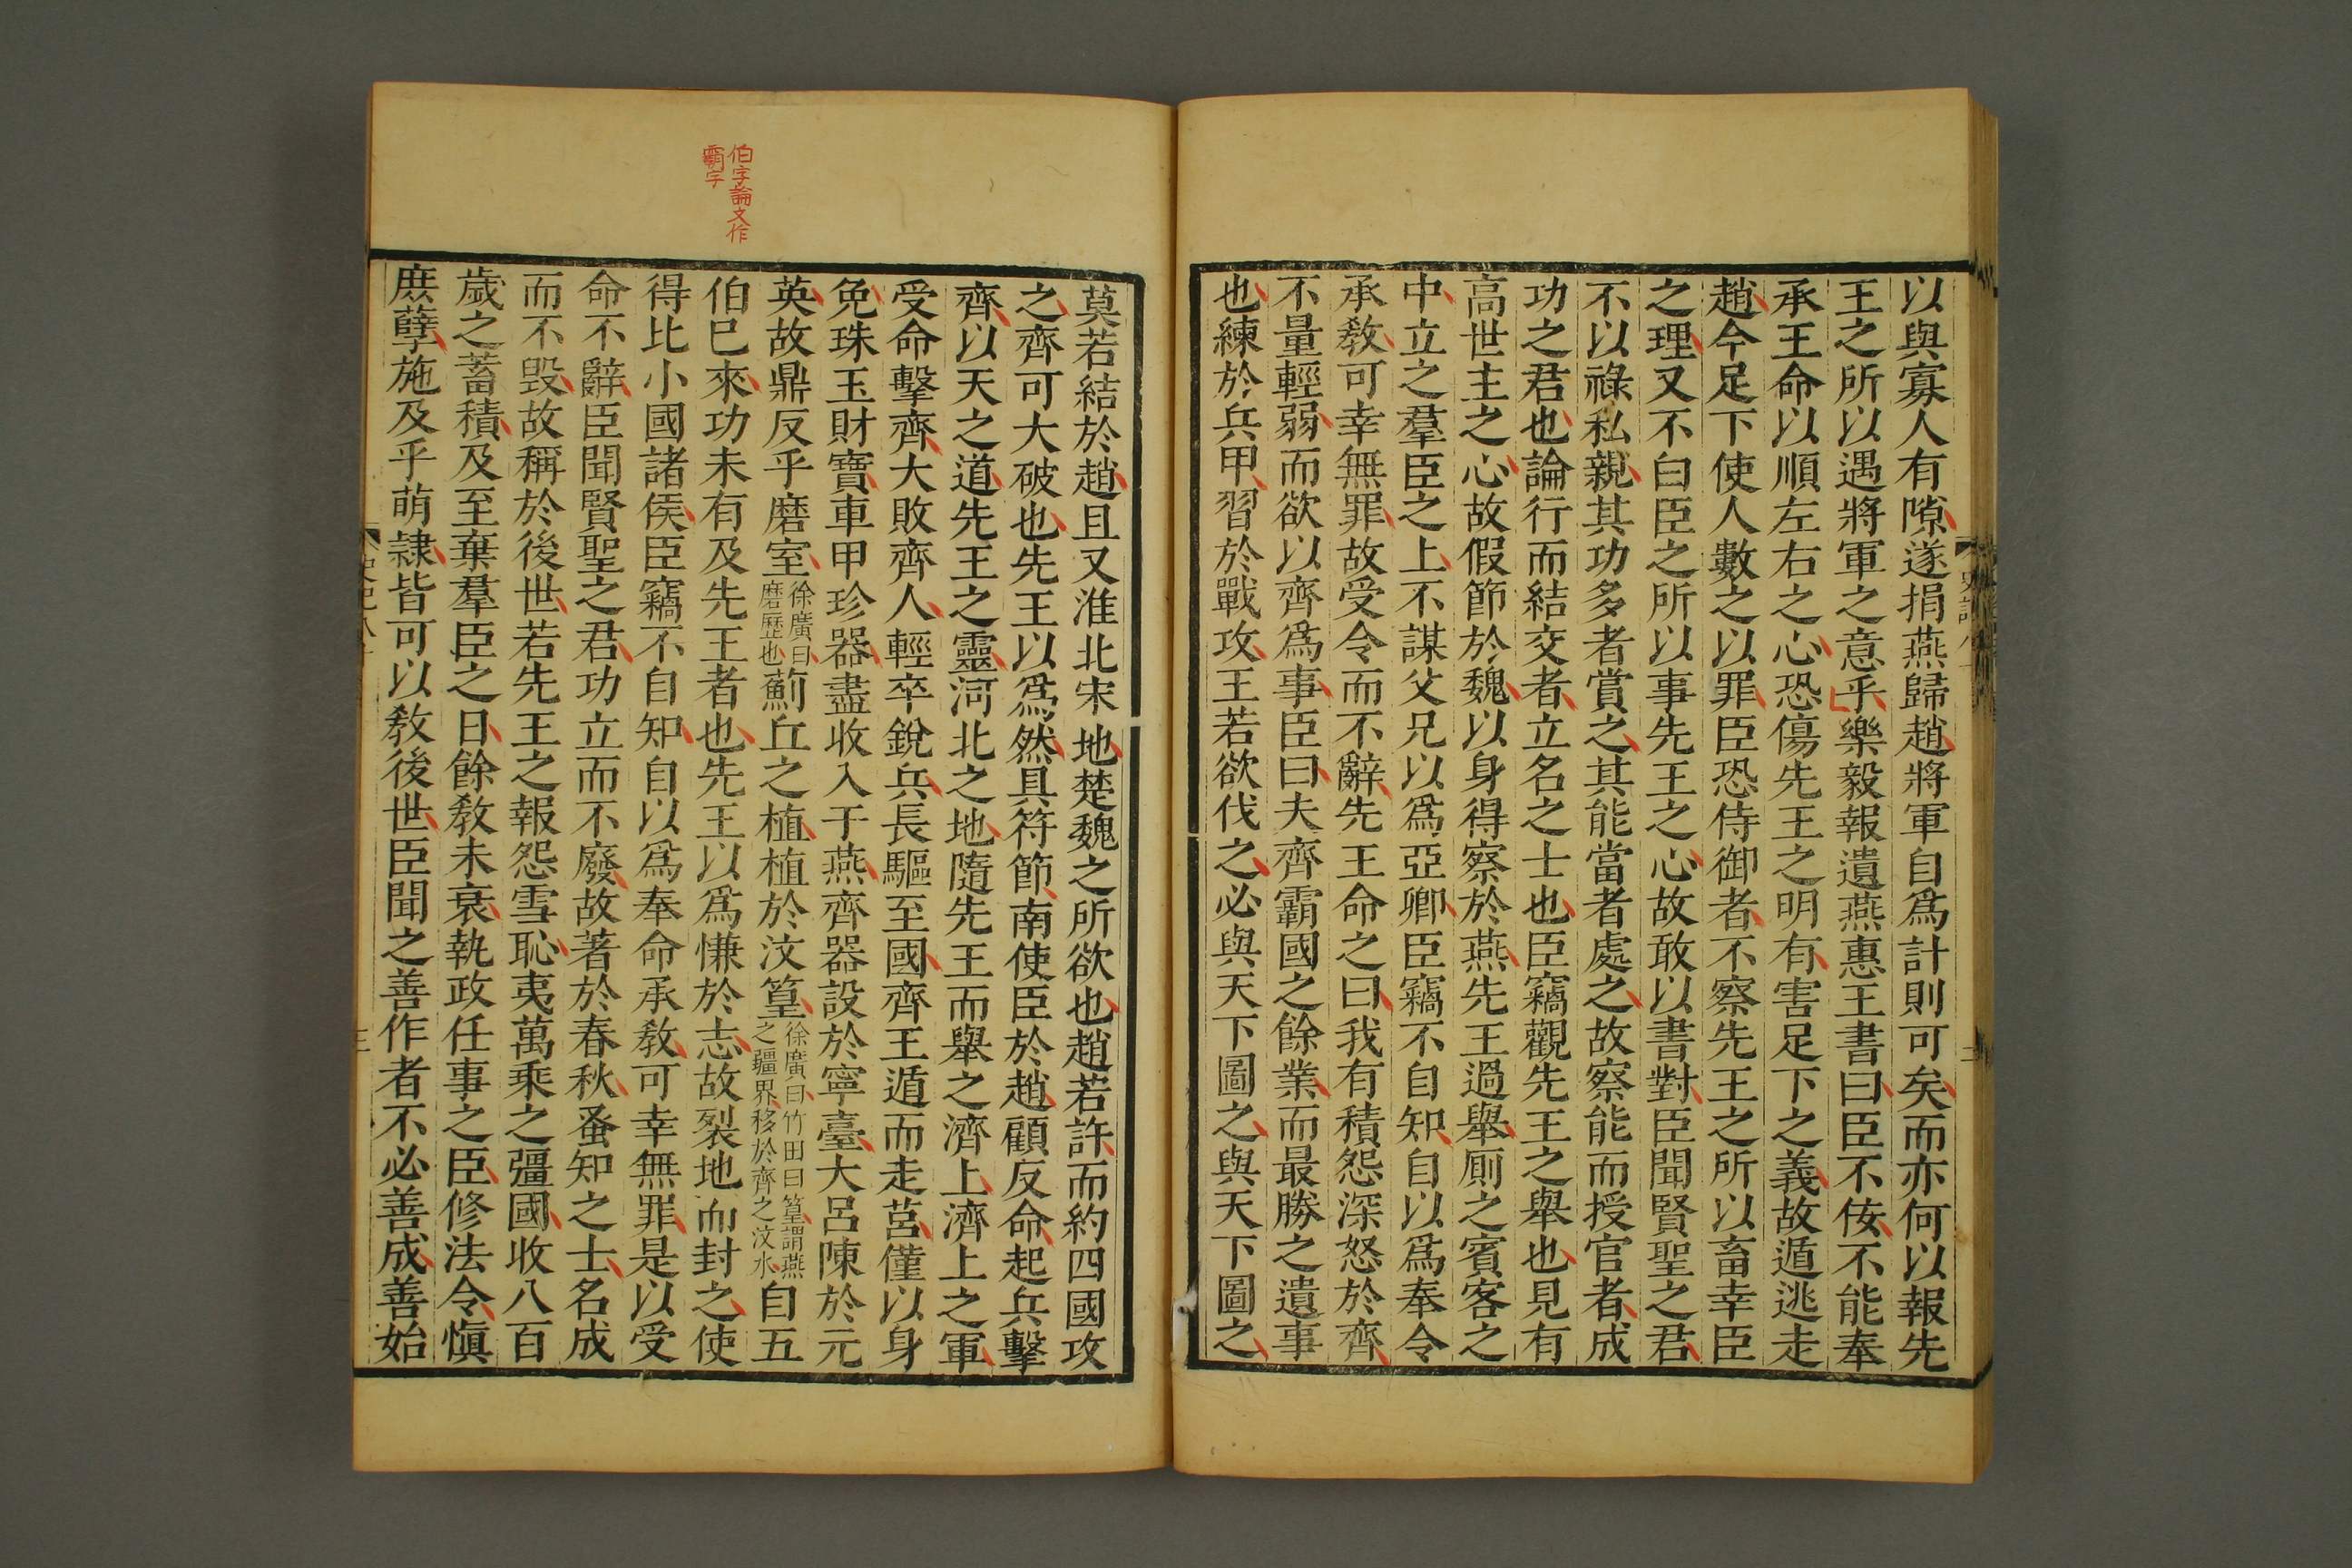 以與寡人有隙遂捐燕歸趙將軍自爲計則可矣而亦何以報先
王之所以遇將軍之意乎樂毅報遺燕惠王書曰臣不佞不能奉
承王命以順左右之心恐傷先王之明有害足下之義故遁逃走
趙今足下使人數之以罪臣恐侍御者不察先王之所以畜幸臣
之理又不白臣之所以事先王之心故敢以書對臣聞賢聖之君
不以祿私親其功多者賞之其能當者處之故察能而授官者成
功之君也論行而結交者立名之士也臣竊觀先王之舉也見有
高世主之心故假節於魏以身得察於燕先王過舉厠之賓客之
中立之羣臣之上不謀父兄以爲亞卿臣竊不自知自以爲奉令
承敎可幸無罪故受令而不辭先王命之曰我有積怨深怒於齊
不量輕弱而欲以齊爲事臣曰夫齊霸國之餘業而最勝之遺事
也練於兵甲習於戰攻王若欲伐之必與天下圖之與天下圖之
史記八十
三
莫若結於趙且又淮北宋地楚魏之所欲也趙若許而約四國攻
之齊可大破也先王以爲然具符節南使臣於趙顧反命起兵擊
齊以天之道先王之靈河北之地隨先王而舉之濟上濟上之軍
受命擊齊大敗齊人輕卒銳兵長驅至國齊王遁而走莒僅以身
免珠玉財寶車甲珍器盡收入于燕齊器設於寧臺大呂陳於元
英故鼎反乎磨室徐廣曰磨歷也薊丘之植植於汶篁徐廣曰竹田曰篁謂燕之疆界移於齊之汶水自五
伯已來功未有及先王者也先王以爲慊於志故裂地而封之使
得比小國諸侯臣竊不自知自以爲奉命承敎可幸無罪是以受
命不辭臣聞賢聖之君功立而不廢故著於春秋蚤知之士名成
而不毀故稱於後世若先王之報怨雪恥夷萬乘之彊國收八百
歲之蓄積及至棄羣臣之日餘敎未衰執政任事之臣修法令愼
庶孽施及乎萌隷皆可以敎後世臣聞之善作者不必善成善始
伯字論文作
霸字